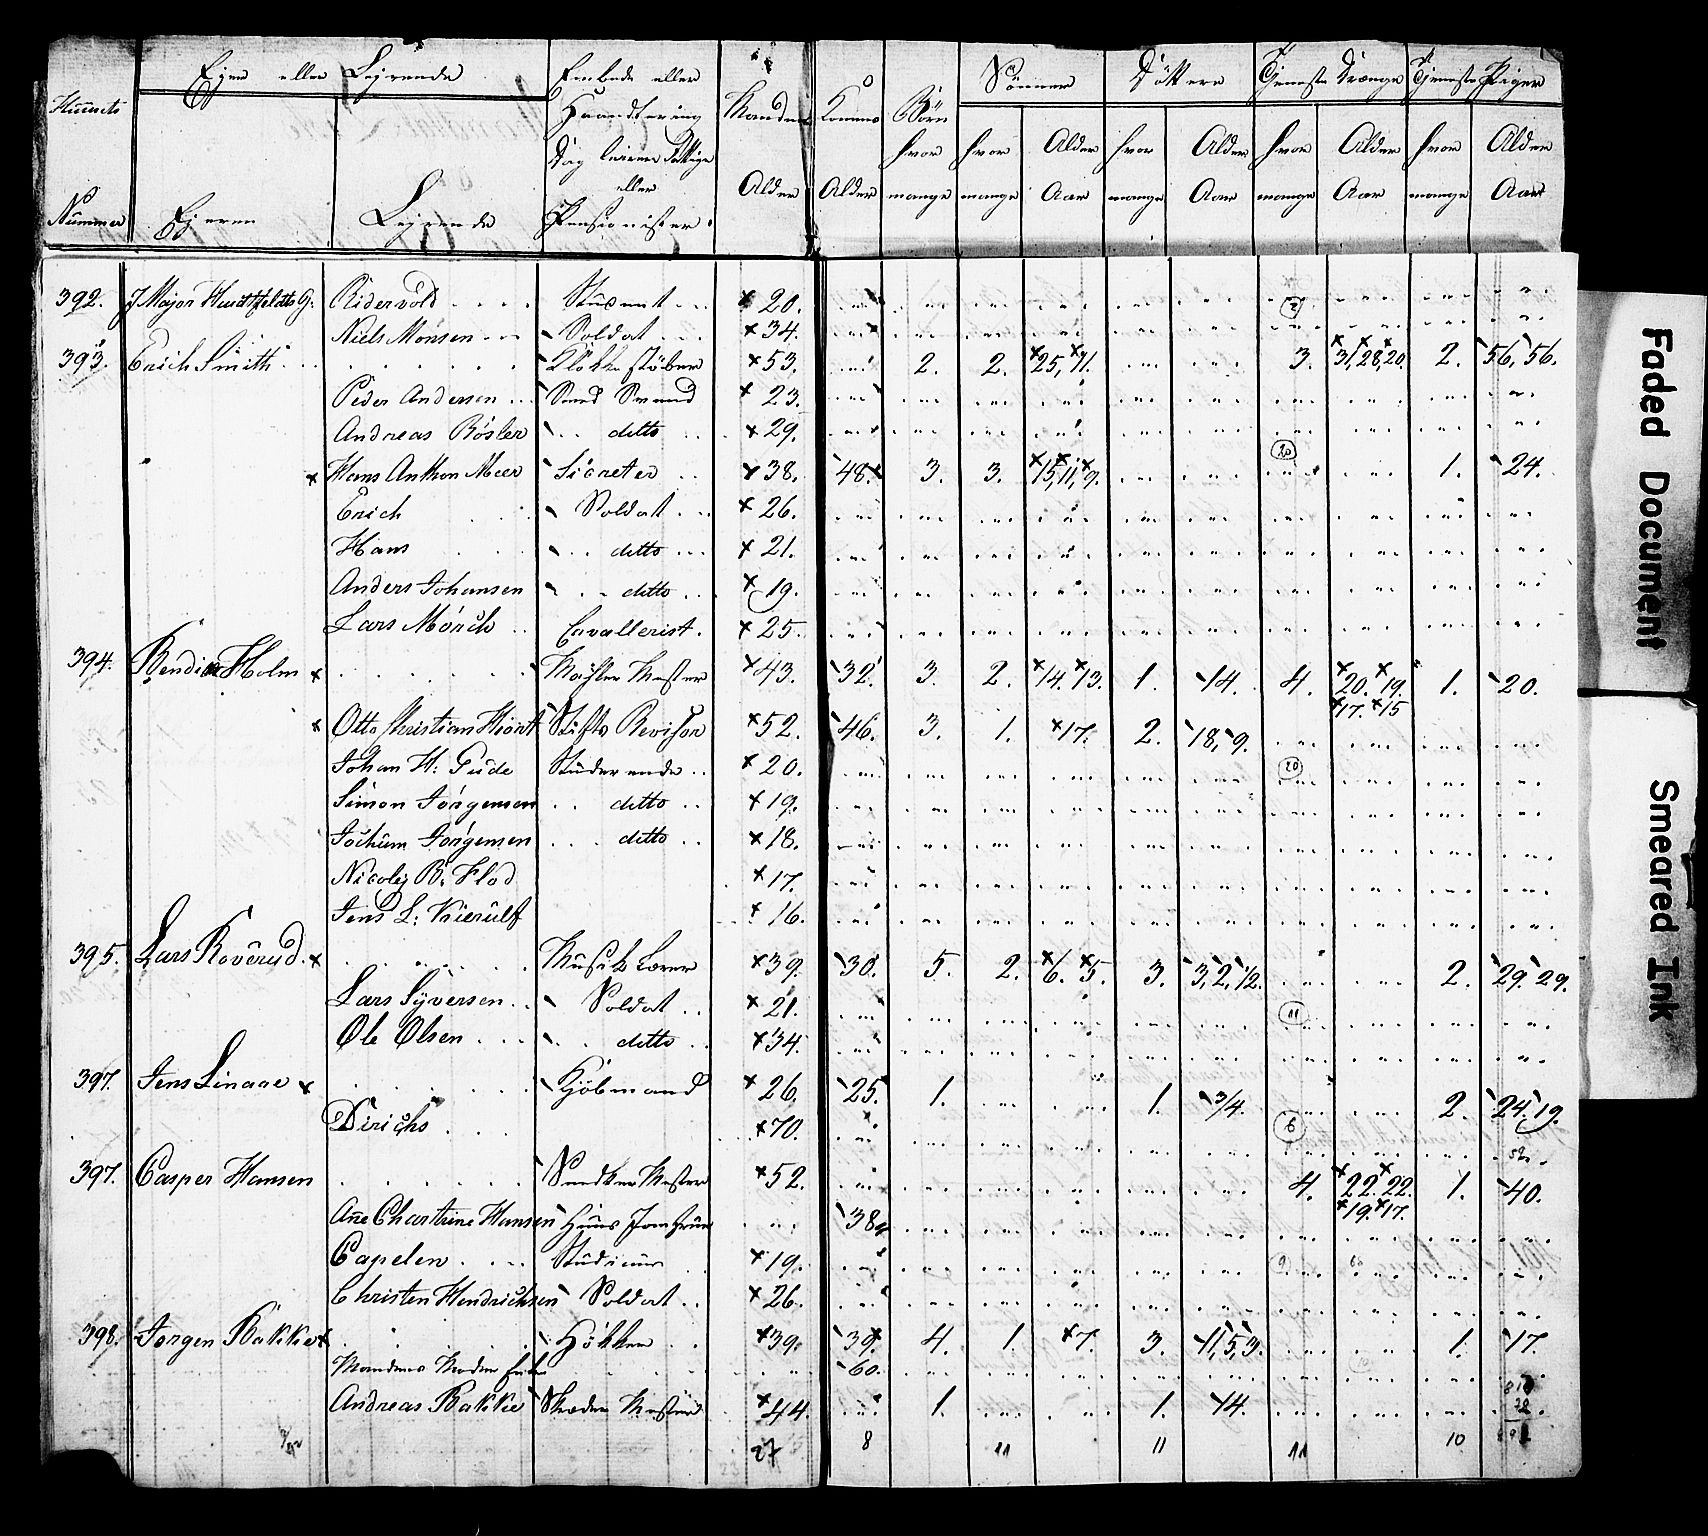 Huusets Nummer | Ejere eller Lejende | Embede eller Haandtering | Mandens | Konens | Børn | Sønner | Døttre | Tjeneste Drænge | Tjeneste Piger
Ejeren | Lejende | eller Pensionister | Alder | Alder | hvor mange | hvor mange | Alder Aar | hvor mange | Alder Aar | hvor mange | Alder Aar | hvor mange | Alder Aar
392. Major G: Ridervold Student 20.
Niels Monsen Soldat 34.
393. Erich Smith Klokkestøber 53. 2. 2. 25, 71. 3. 31, 28, 20. 2. 56, 56.
Peder Andersen Smed Svend 23.
Andreas Bósler ditto 29.
Hans Anthon Meer Sicreter 38. 48. 3. 3. 15, 11, 9. 1. 24.
Erich Soldat 26.
Hans ditto 21.
Anders Johansen ditto 19.
Lars Mórch Cavallerist. 25.
394. Holm Mester 43. 32. 3. 2. 14. 13. 1. 14. 4. 20. 19. 1. 20.
17. 15
Otto Christian Hiort Stifts Revisor 52. 46. 3. 1. 17. 2. 18, 9.
Johan H: Gude Studerende 20.
Simon Jórgensen ditto 19.
Jochum Jorgensen ditto 18.
Nicolej B: Flod 17.
Jens L: Kierulf 16.
395. Lars Roverud Musik Lærer 39. 30. 5. 2. 6. 5. 3. 3, 2, 1/2. 2. 29. 29.
Lars Syversen Soldat 21.
Ole Olsen ditto 34.
397. Jens Linaae Kjöbmand 26. 25. 1. 1. 3/4. 2. 24. 19.
Dirichs 70.
397. Casper Hansen Snedker Mester 52. 4. 22. 22. 1. 40.
19. 17.
Añe Chartrine Hansen Huus Jomfrue 38
Capelen 19.
Christen Hendrichsen Soldat 26.
398. Jorgen Bakke Hökker 39. 39. 4. 1. 7. 3. 11, 5, 3. 1. 17.
Mandens Moder 60.
Andreas Bakke Mester 44. 1. 1. 14.
27 8 11 11 11 10
Faded Document
Smeared Ink